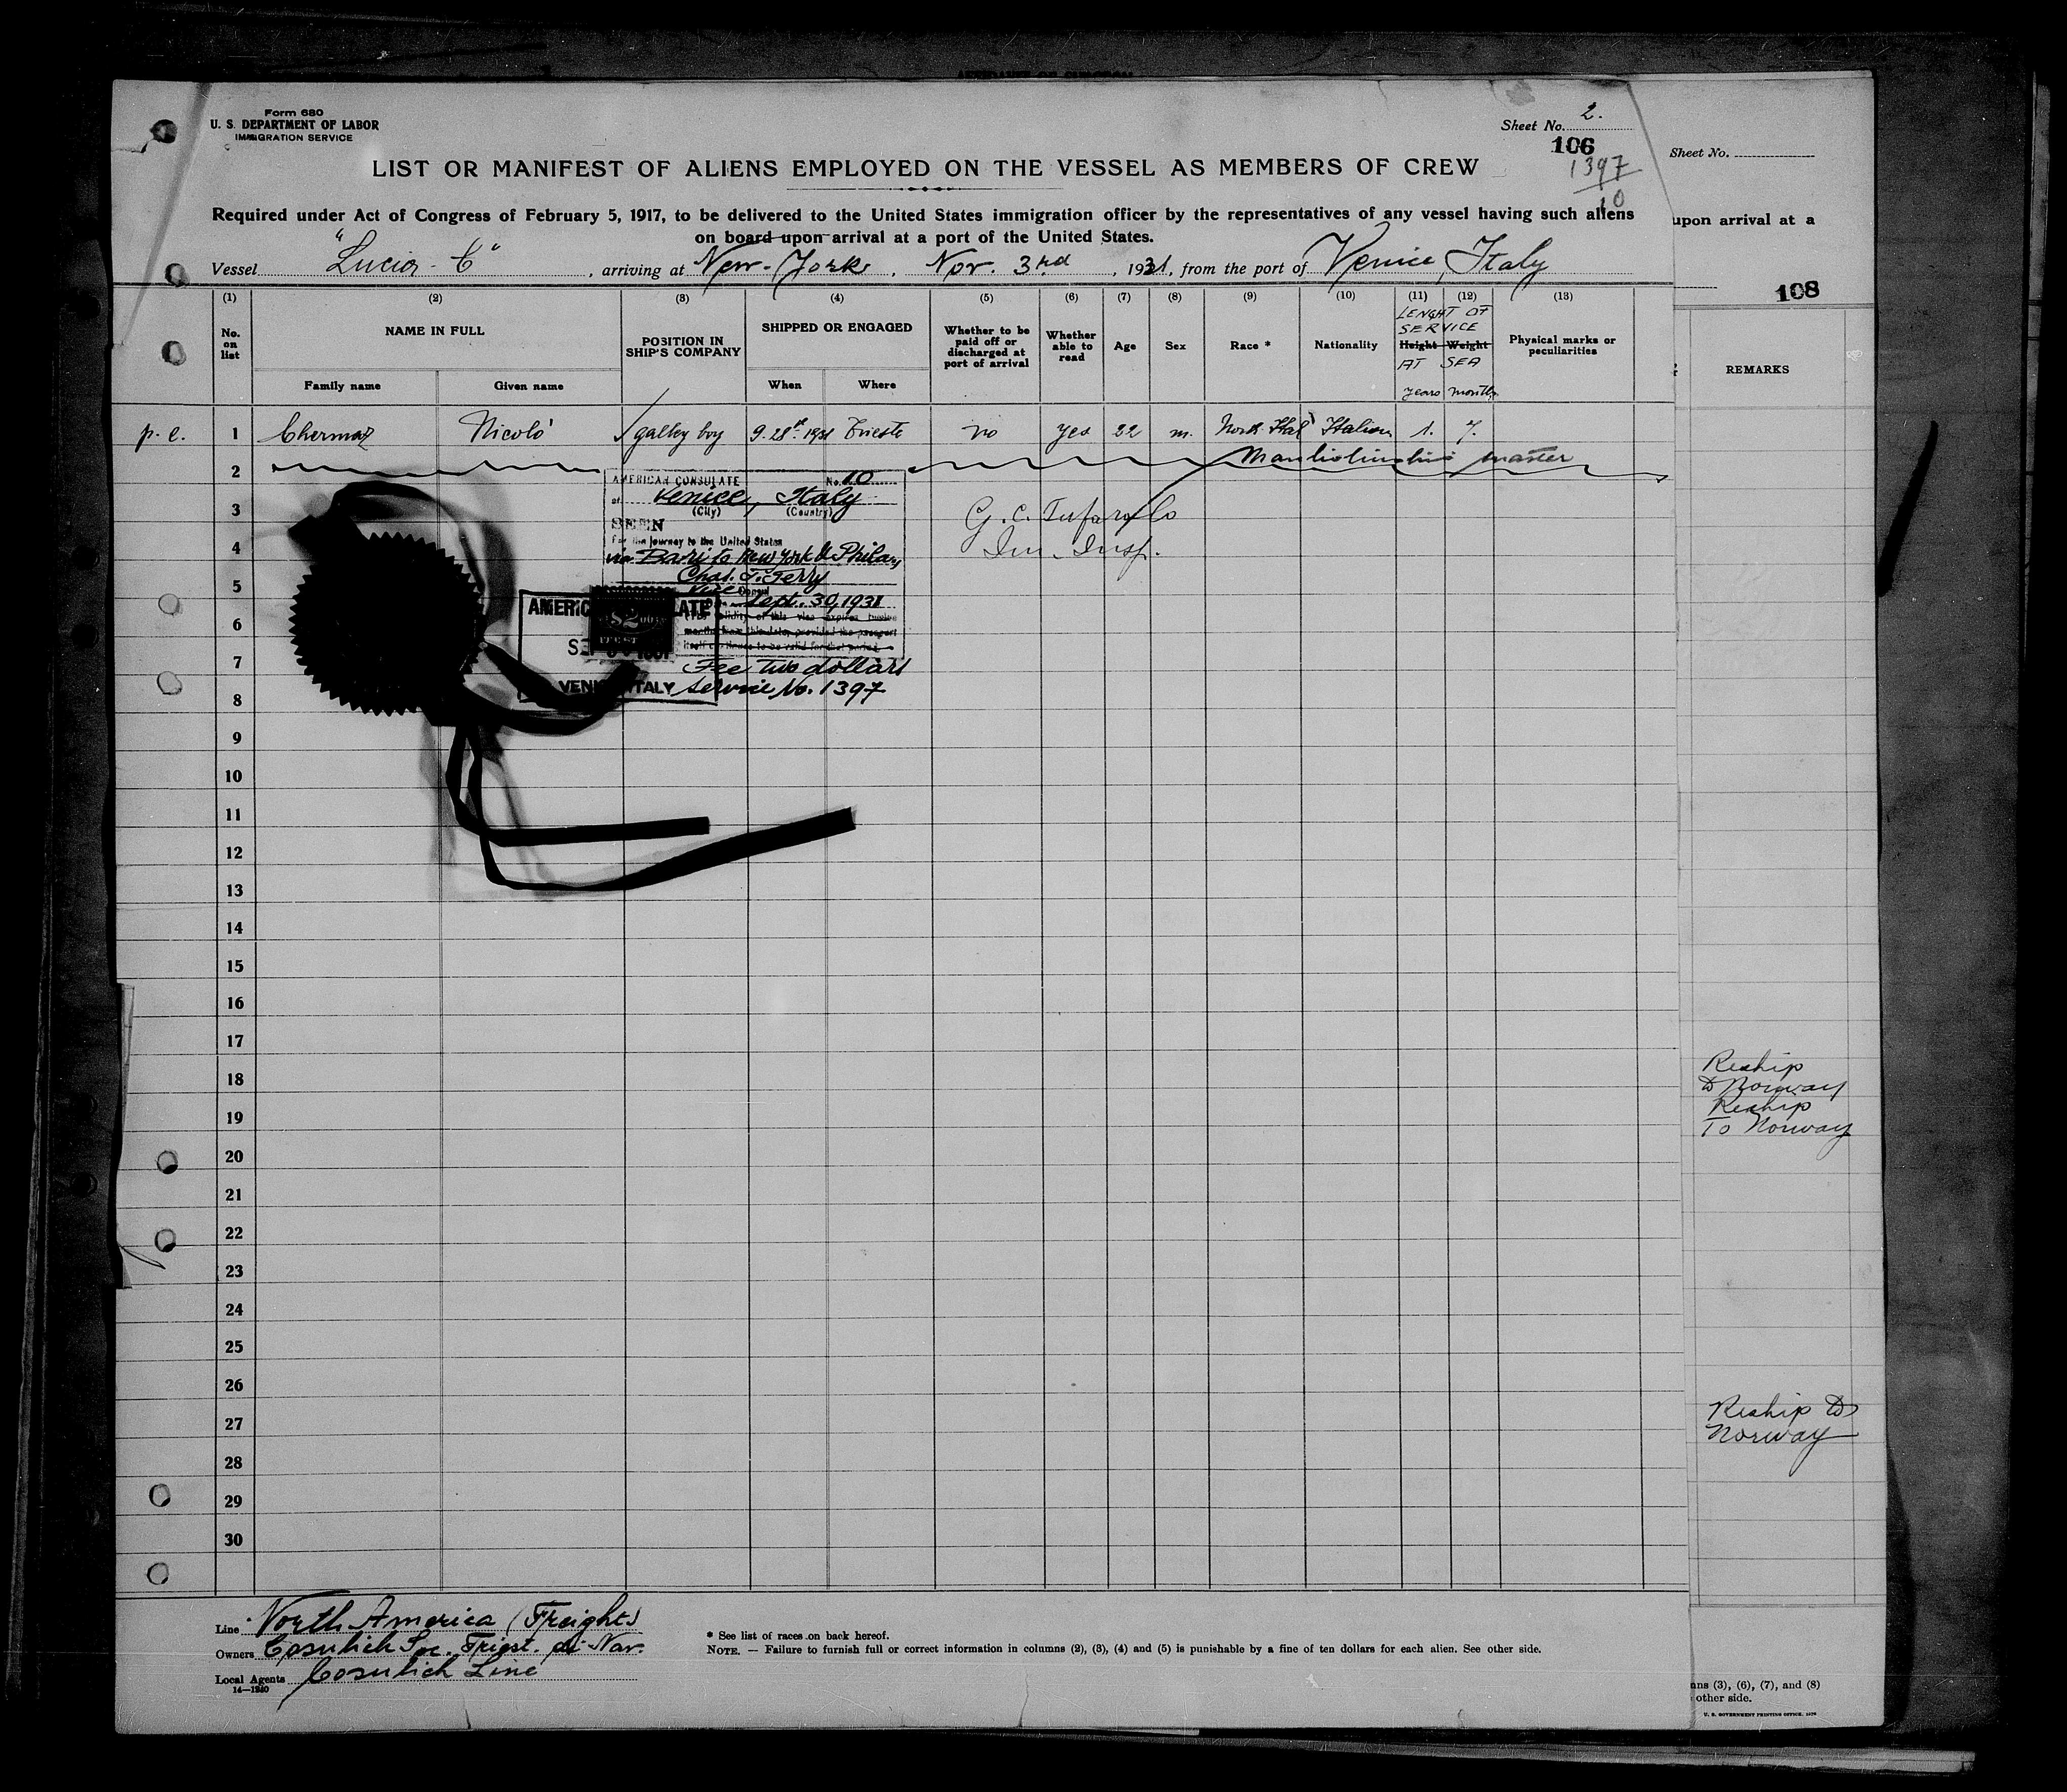 Form 680
U. S. DEPARTMENT OF LABOR
IMMIGRATION SERVICE
Sheet No. 2.
106
1397
10
LIST OR MANIFEST OF ALIENS EMPLOYED ON THE VESSEL AS MEMBERS OF CREW
Required under Act of Congress of February 5, 1917, to be delivered to the United States immigration officer by the representatives of any vessel having such aliens
on board upon arrival at a port of the United States.
Vessel "Lucia - C" , arriving at New-York , Nov. 3rd , 1931, from the port of Venice, Italy
(1) (2) (3) (4) (5) (6) (7) (8) (9) (10) (11) (12) (13)
No. on list
NAME IN FULL
Family name Given name
POSITION IN SHIP'S COMPANY
SHIPPED OR ENGAGED
When Where
Whether to be paid off or discharged at port of arrival
Whether able to read
Age
Sex
Race *
Nationality
LENGHT OF
SERVICE
Height Weight
AT SEA
years months
Physical marks or peculiarities
p. e. 1 Nicoló galley boy 9. 28st 1931 Trieste no yes 22 m. North Ital Italian 1. 7.
2
master
3
4
5
6
7
8
9
10
11
12
13
14
15
16
17
18
19
20
21
22
23
24
25
26
27
28
29
30
AMERICAN CONSULATE No. 10
at Venice, Italy
(City) (Country)
SEEN
For the journey to the United States
via Bari to New York & Phila,
Chas. T. Terry
Vice Consul
Sept. 30, 1931
validity of this visa expires twelve
months from this date, provided the passport
itself continues to be valid for that period.
Fee two dollars
Service No. 1397
VENICE, ITALY
G. C.
Im. Insp.
Line North America (Freight)
Owners Cosulich Soc. Triest. di Nav.
Local Agents Cosulich Line
14—1240
* See list of races on back hereof.
NOTE. — Failure to furnish full or correct information in columns (2), (3), (4) and (5) is punishable by a fine of ten dollars for each alien. See other side.
Sheet No.
upon arrival at a
108
REMARKS
Reship
to Norway
Reship
To Norway
Reship to
Norway
ns (3), (6), (7), and (8)
other side.
U. S. GOVERNMENT PRINTING OFFICE